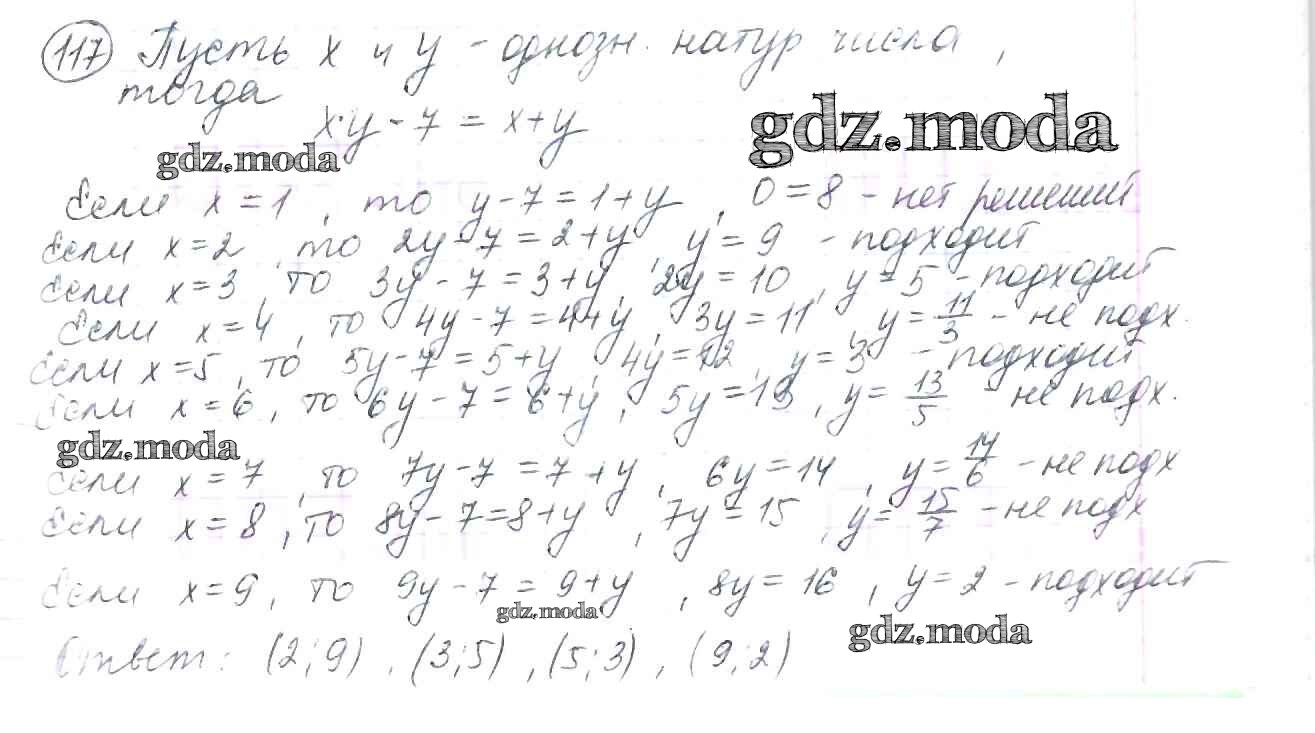 117 Пусть x и y - однозн. натур числа,
тогда
x·y - 7 = x+y
gdz.moda
gdz.moda
Если x=1, то y-7=1+y, 0=8 - нет решений
Если x=2, то 2y-7=2+y, y=9 - подходит
Если x=3, то 3y-7=3+y, 2y=10, y=5 - подходит
Если x=4, то 4y-7=4+y, 3y=11, y=11/3 - не подх.
Если x=5, то 5y-7=5+y, 4y=12, y=3 - подходит
Если x=6, то 6y-7=6+y, 5y=13, y=13/5 - не подх.
gdz.moda
Если x=7, то 7y-7=7+y, 6y=14, y=14/6 - не подх
Если x=8, то 8y-7=8+y, 7y=15, y=15/7 - не подх
Если x=9, то 9y-7=9+y, 8y=16, y=2 - подходит
gdz.moda
gdz.moda
Ответ: (2;9), (3;5), (5;3), (9;2)